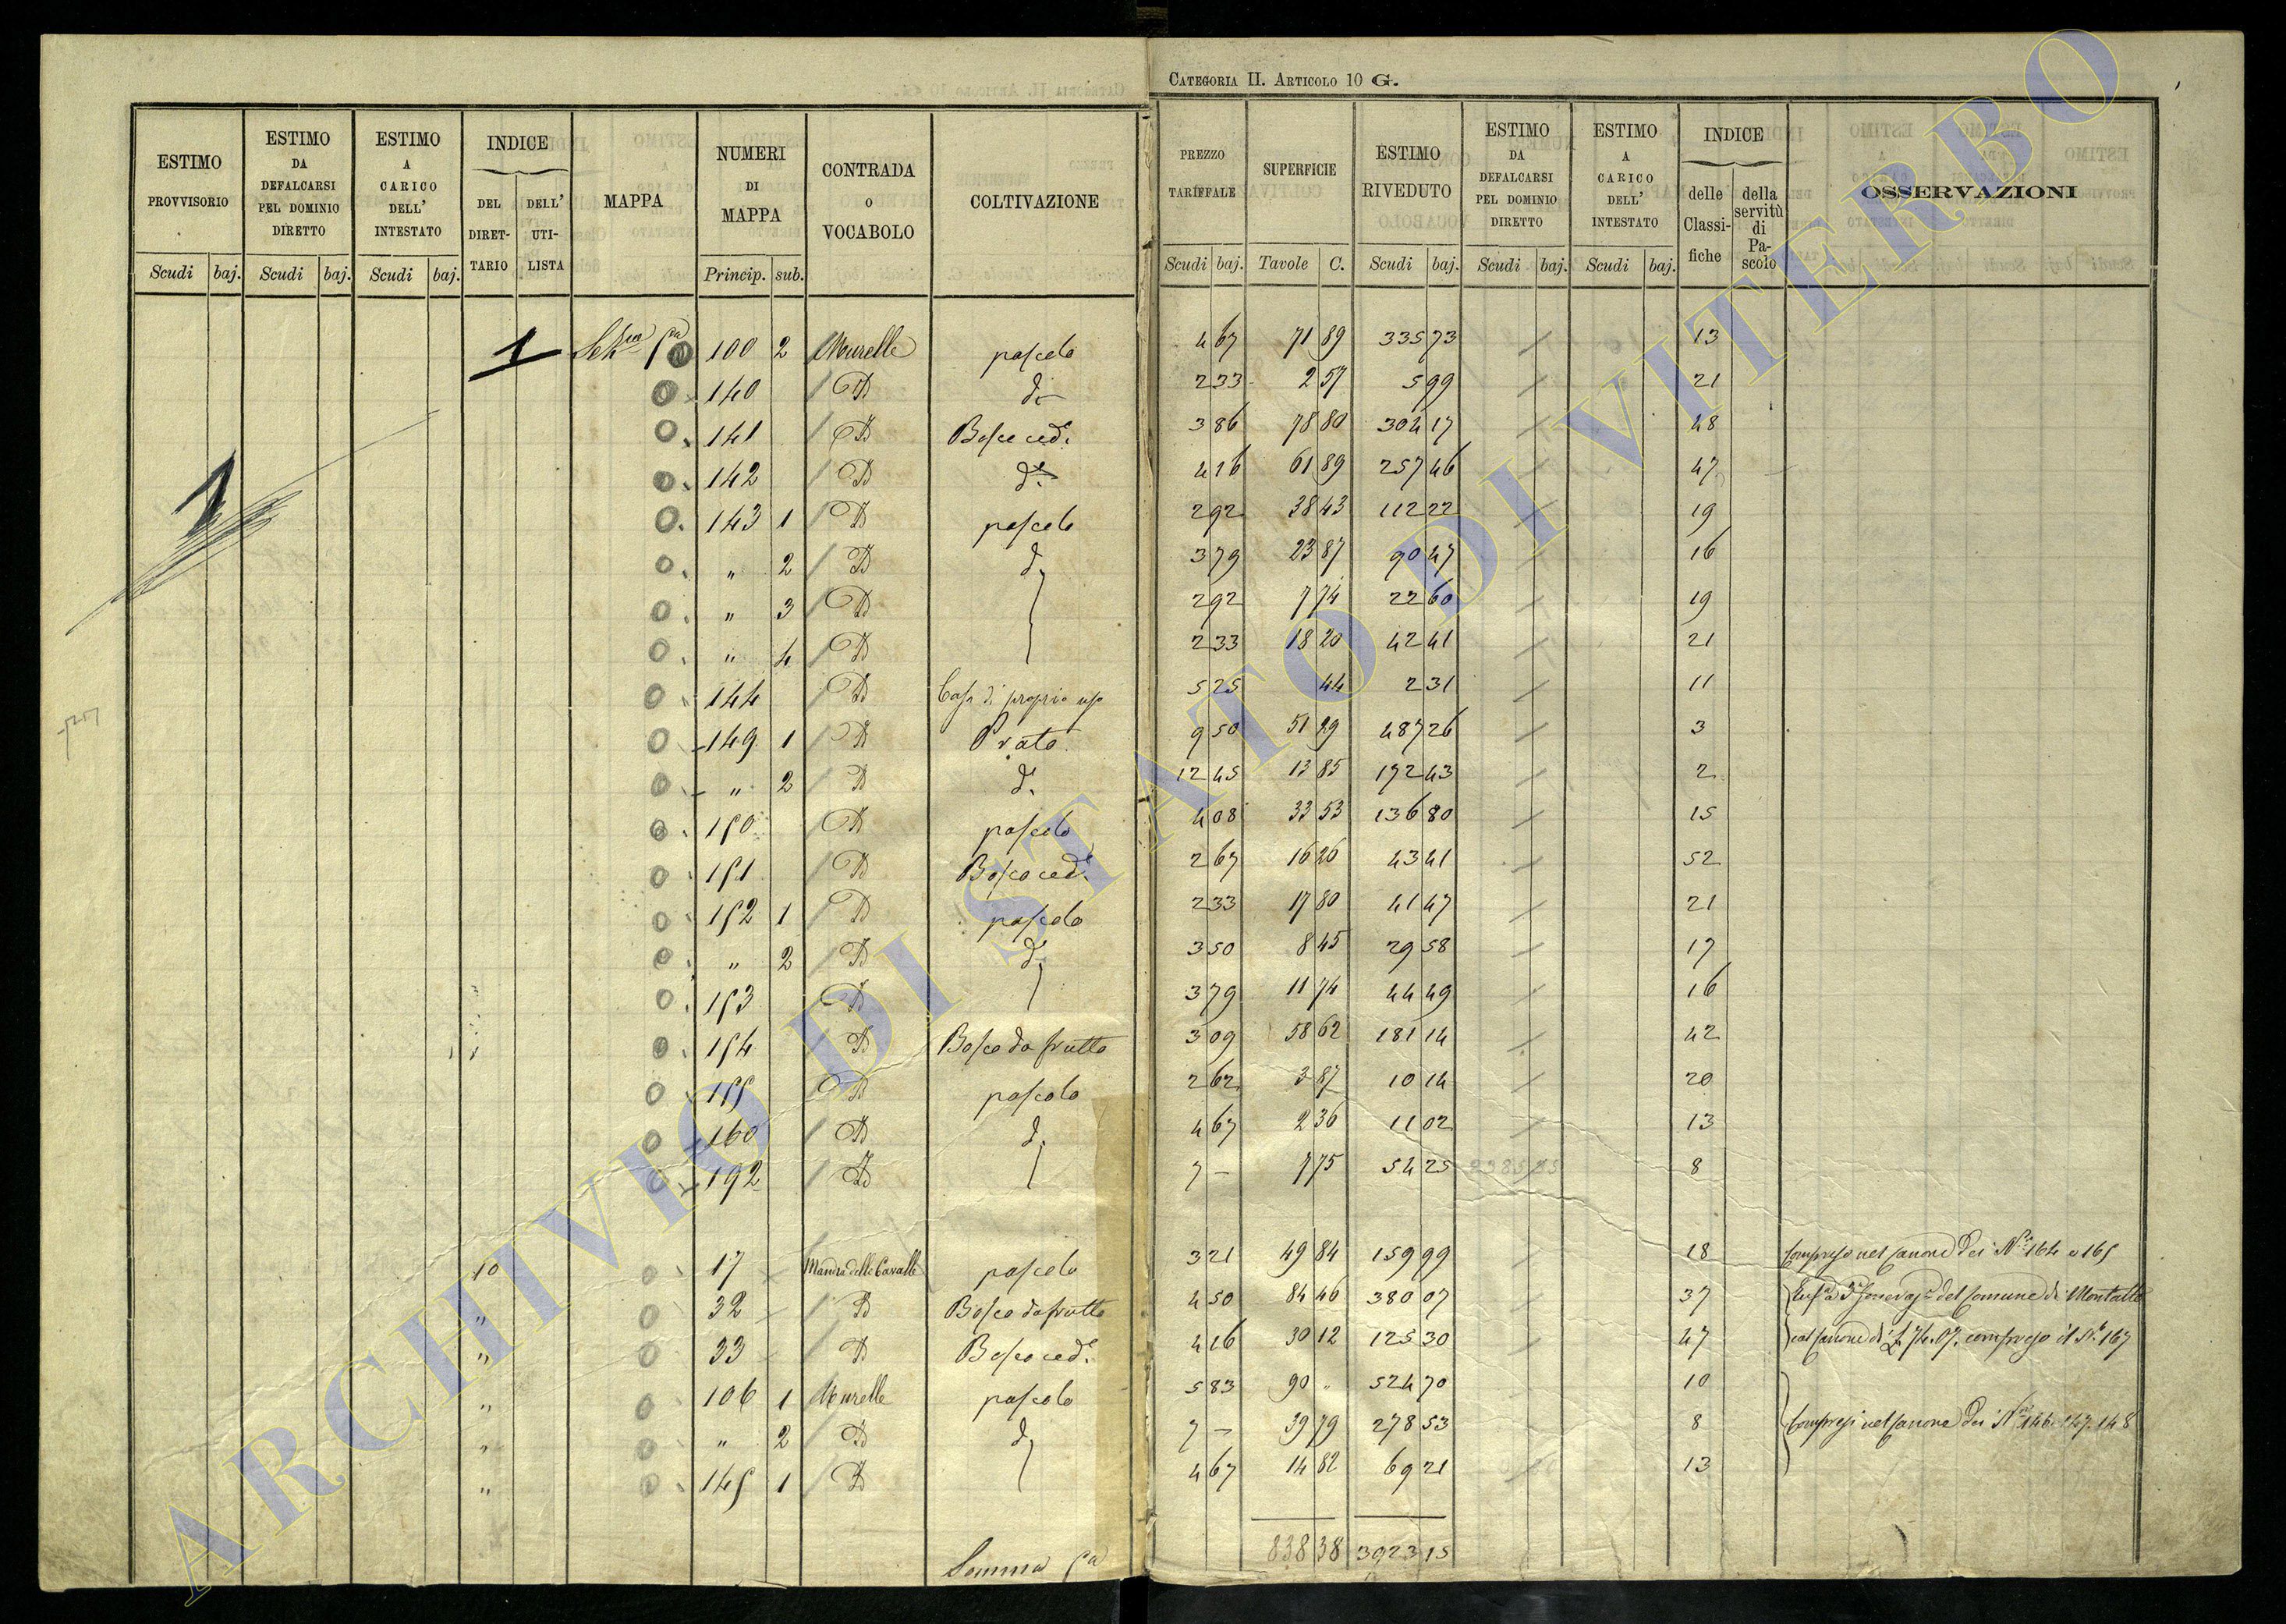 CATEGORIA II. ARTICOLO 10 G.
ESTIMO PROVVISORIO Scudi baj.
ESTIMO DA DEFALCARSI PEL DOMINIO DIRETTO Scudi baj.
ESTIMO A CARICO DELL' INTESTATO Scudi baj.
INDICE DEL DIRET-TARIO DELL' UTI-LISTA
MAPPA
NUMERI DI MAPPA Princip. sub.
CONTRADA O VOCABOLO
COLTIVAZIONE
PREZZO TARIFFALE Scudi baj.
SUPERFICIE Tavole C.
ESTIMO RIVEDUTO Scudi baj.
ESTIMO DA DEFALCARSI PEL DOMINIO DIRETTO Scudi baj.
ESTIMO A CARICO DELL' INTESTATO Scudi baj.
INDICE delle Classi-fiche della servitù di Pa-scolo
OSSERVAZIONI
1 1 100 2 Murelle pascolo 4 67 71 89 335 73 13
140 D d. 2 33 2 57 5 99 21
141 D Bosco ced. 3 86 78 80 304 17 48
142 D d. 4 16 61 89 257 46 47
143 1 D pascolo 2 92 38 43 112 22 19
" 2 D d. 3 79 23 87 90 47 16
" 3 D 2 92 7 74 22 60 19
" 4 D 2 33 18 20 42 41 21
144 D Casa di proprio uso 5 25 44 2 31 11
149 1 D Prato 9 50 51 29 487 26 3
" 2 D d. 12 45 13 85 172 43 2
150 D pascolo 4 08 33 53 136 80 15
151 D Bosco ced. 2 67 16 26 43 41 52
152 1 D pascolo 2 33 17 80 41 47 21
" 2 D d. 3 50 8 45 29 58 17
153 D 3 79 11 74 44 49 16
154 D Bosco da frutto 3 09 58 62 181 14 42
155 D pascolo 2 62 3 87 10 14 20
160 D d. 4 67 2 36 11 02 13
192 D 7 — 7 75 54 25 8
10 17 Mandra delle Cavalle pascolo 3 21 49 84 159 99 18 Compreso nel canone dei N.ri 164 e 165
" 32 D Bosco da frutto 4 50 84 46 380 07 37 del Comune di Montalto
" 33 D Bosco ced. 4 16 30 12 125 30 47 col canone di 74.07. compreso il N.° 167
" 106 1 Murelle pascolo 5 83 90 " 524 70 10
" " 2 D d. 7 — 39 79 278 53 8 Compresi nel canone dei N.ri 146. 147. 148
" 145 1 D 4 67 14 82 69 21 13
Somma 838 38 3923 15
ARCHIVIO DI STATO DI VITERBO